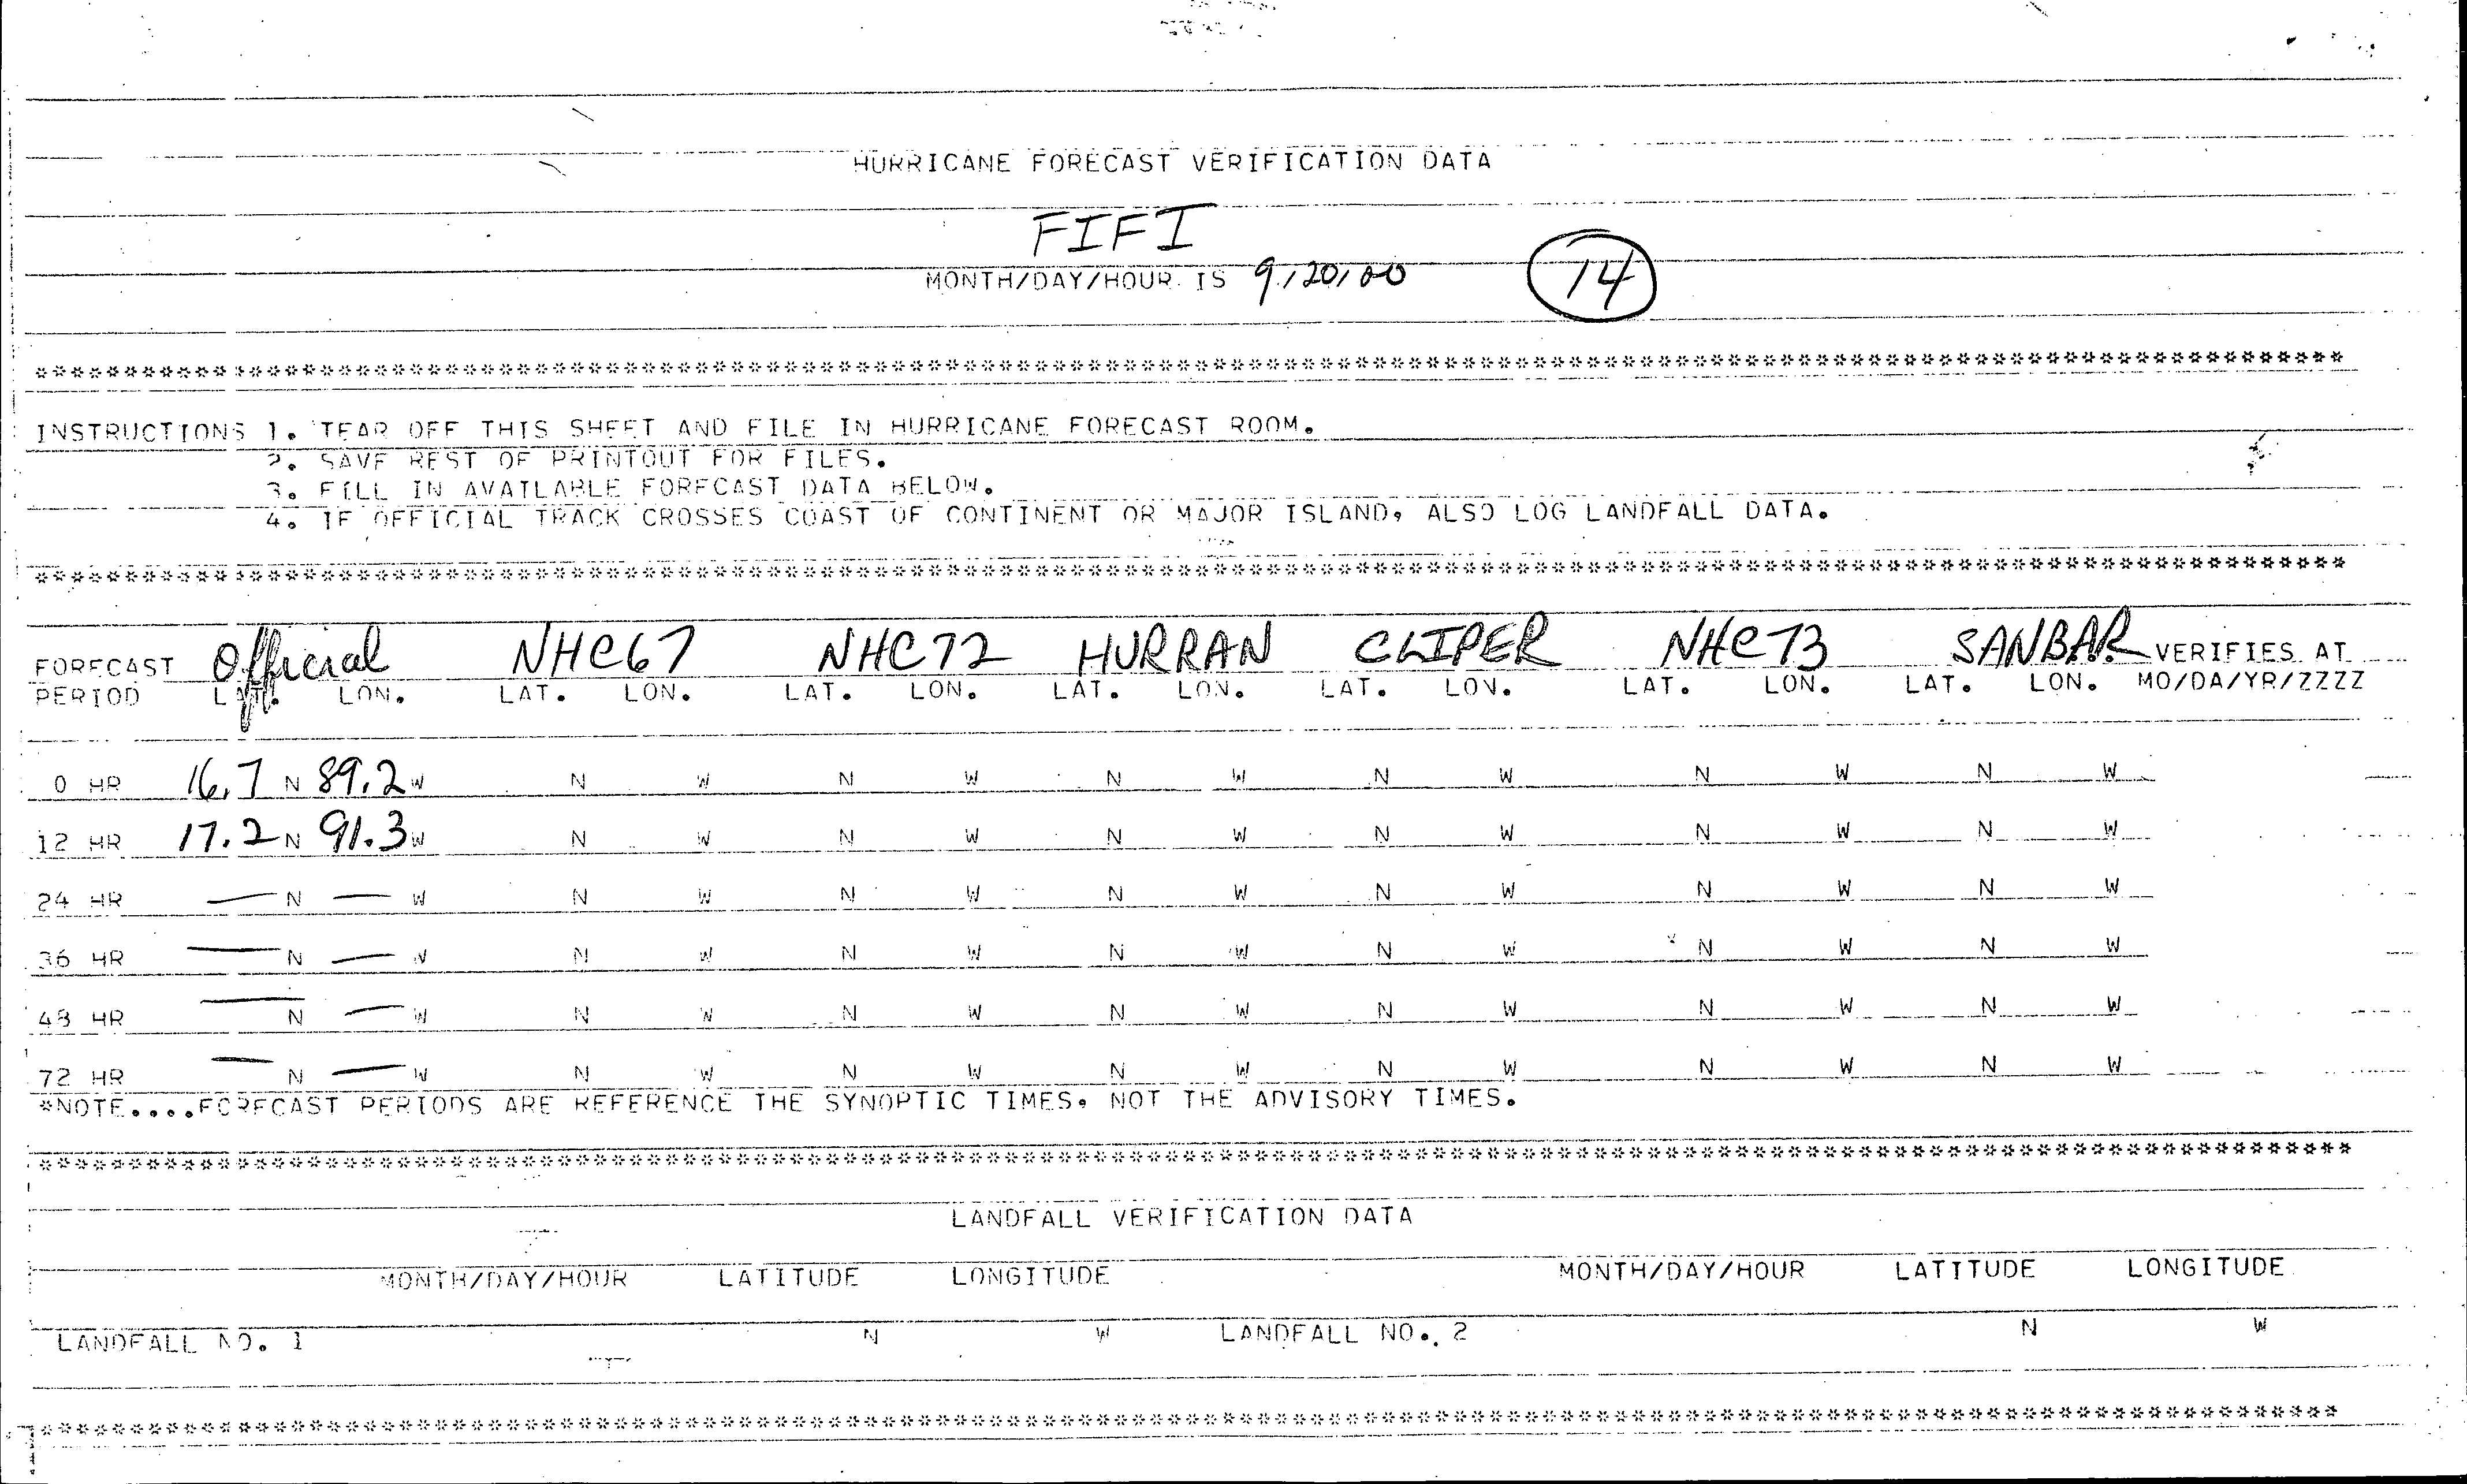 HURRICANE FORECAST VERIFICATION DATA
FIFI
MONTH/DAY/HOUR IS 9/20/00 14
************************************************************
INSTRUCTIONS 1. TEAR OFF THIS SHEET AND FILE IN HURRICANE FORECAST ROOM.
2. SAVE REST OF PRINTOUT FOR FILES.
3. FILL IN AVAILABLE FORECAST DATA BELOW.
4. IF OFFICIAL TRACK CROSSES COAST OF CONTINENT OR MAJOR ISLAND, ALSO LOG LANDFALL DATA.
************************************************************
FORECAST Official NHC67 NHC72 HURRAN CLIPER NHC73 SANBAR VERIFIES AT
PERIOD LAT. LON. LAT. LON. LAT. LON. LAT. LON. LAT. LON. LAT. LON. LAT. LON. MO/DA/YR/ZZZZ
0 HR 16.7 N 89.2 W N W N W N W N W N W N W
12 HR 17.2 N 91.3 W N W N W N W N W N W N W
24 HR — N — W N W N W N W N W N W N W
36 HR — N — W N W N W N W N W N W N W
48 HR — N — W N W N W N W N W N W N W
72 HR — N — W N W N W N W N W N W N W
*NOTE....FORECAST PERIODS ARE REFERENCE THE SYNOPTIC TIMES, NOT THE ADVISORY TIMES.
************************************************************
LANDFALL VERIFICATION DATA
MONTH/DAY/HOUR LATITUDE LONGITUDE MONTH/DAY/HOUR LATITUDE LONGITUDE
LANDFALL NO. 1 N W LANDFALL NO. 2 N W
************************************************************